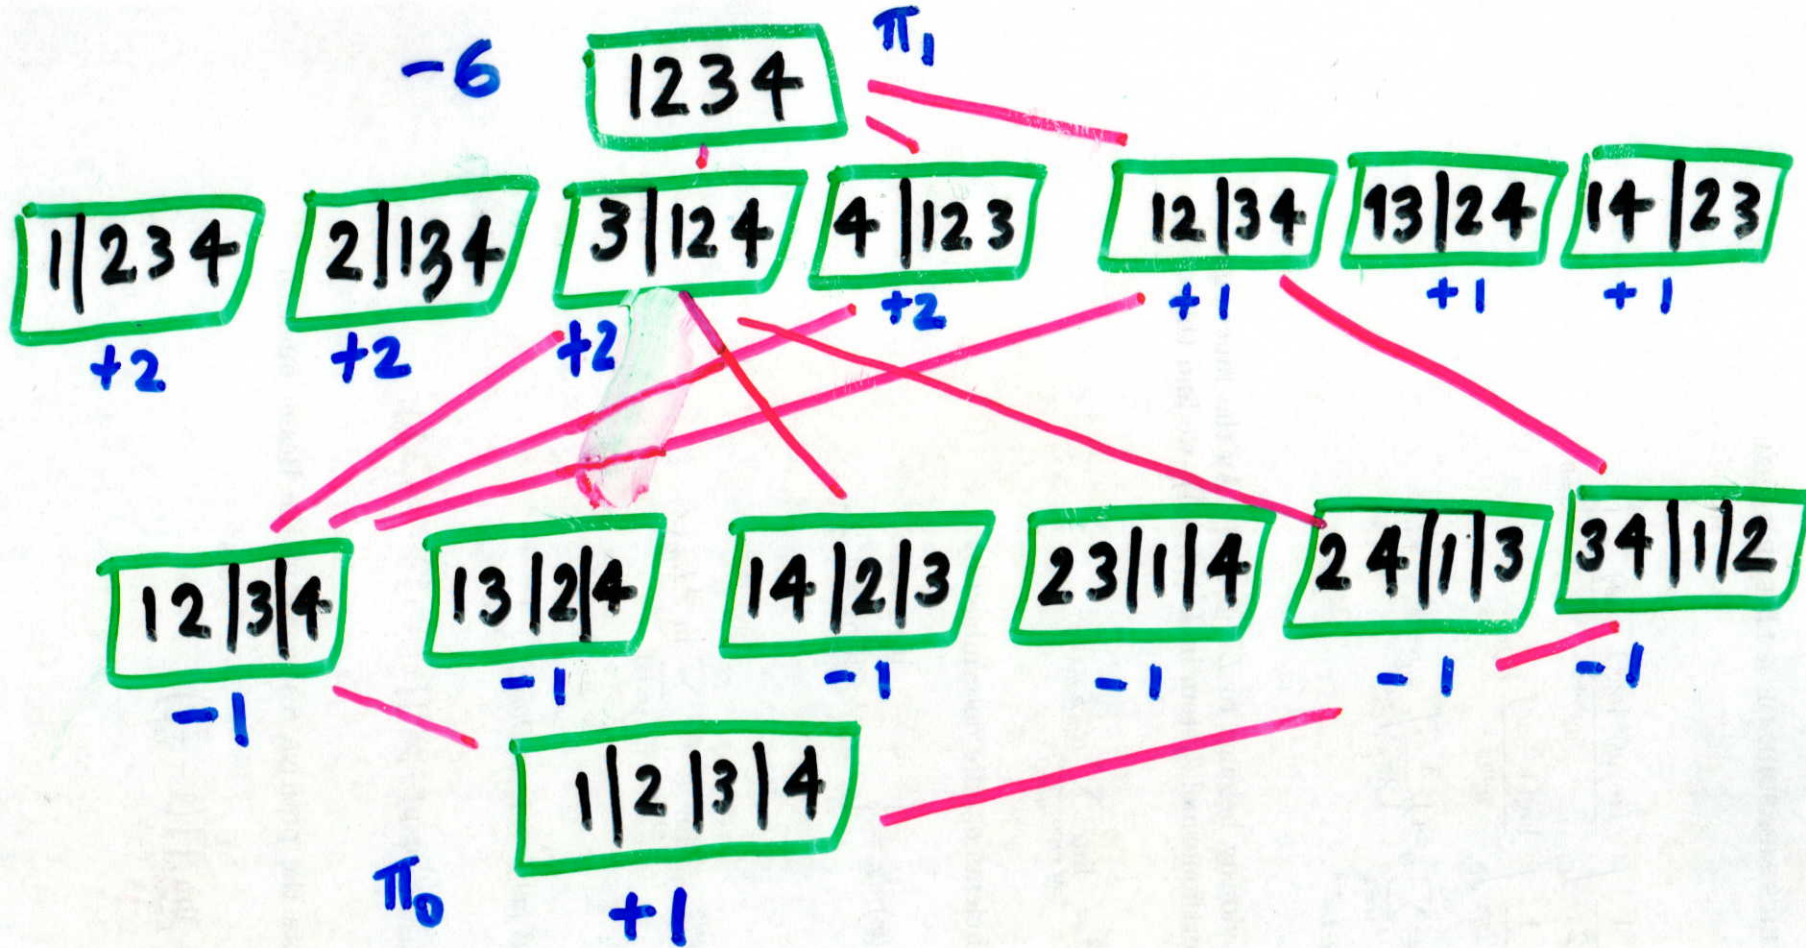 -6 1234 π₁
1|234 2|134 3|124 4|123 12|34 13|24 14|23
+2 +2 +2 +2 +1 +1 +1
12|3|4 13|2|4 14|2|3 23|1|4 24|1|3 34|1|2
-1 -1 -1 -1 -1 -1
1|2|3|4
π₀ +1